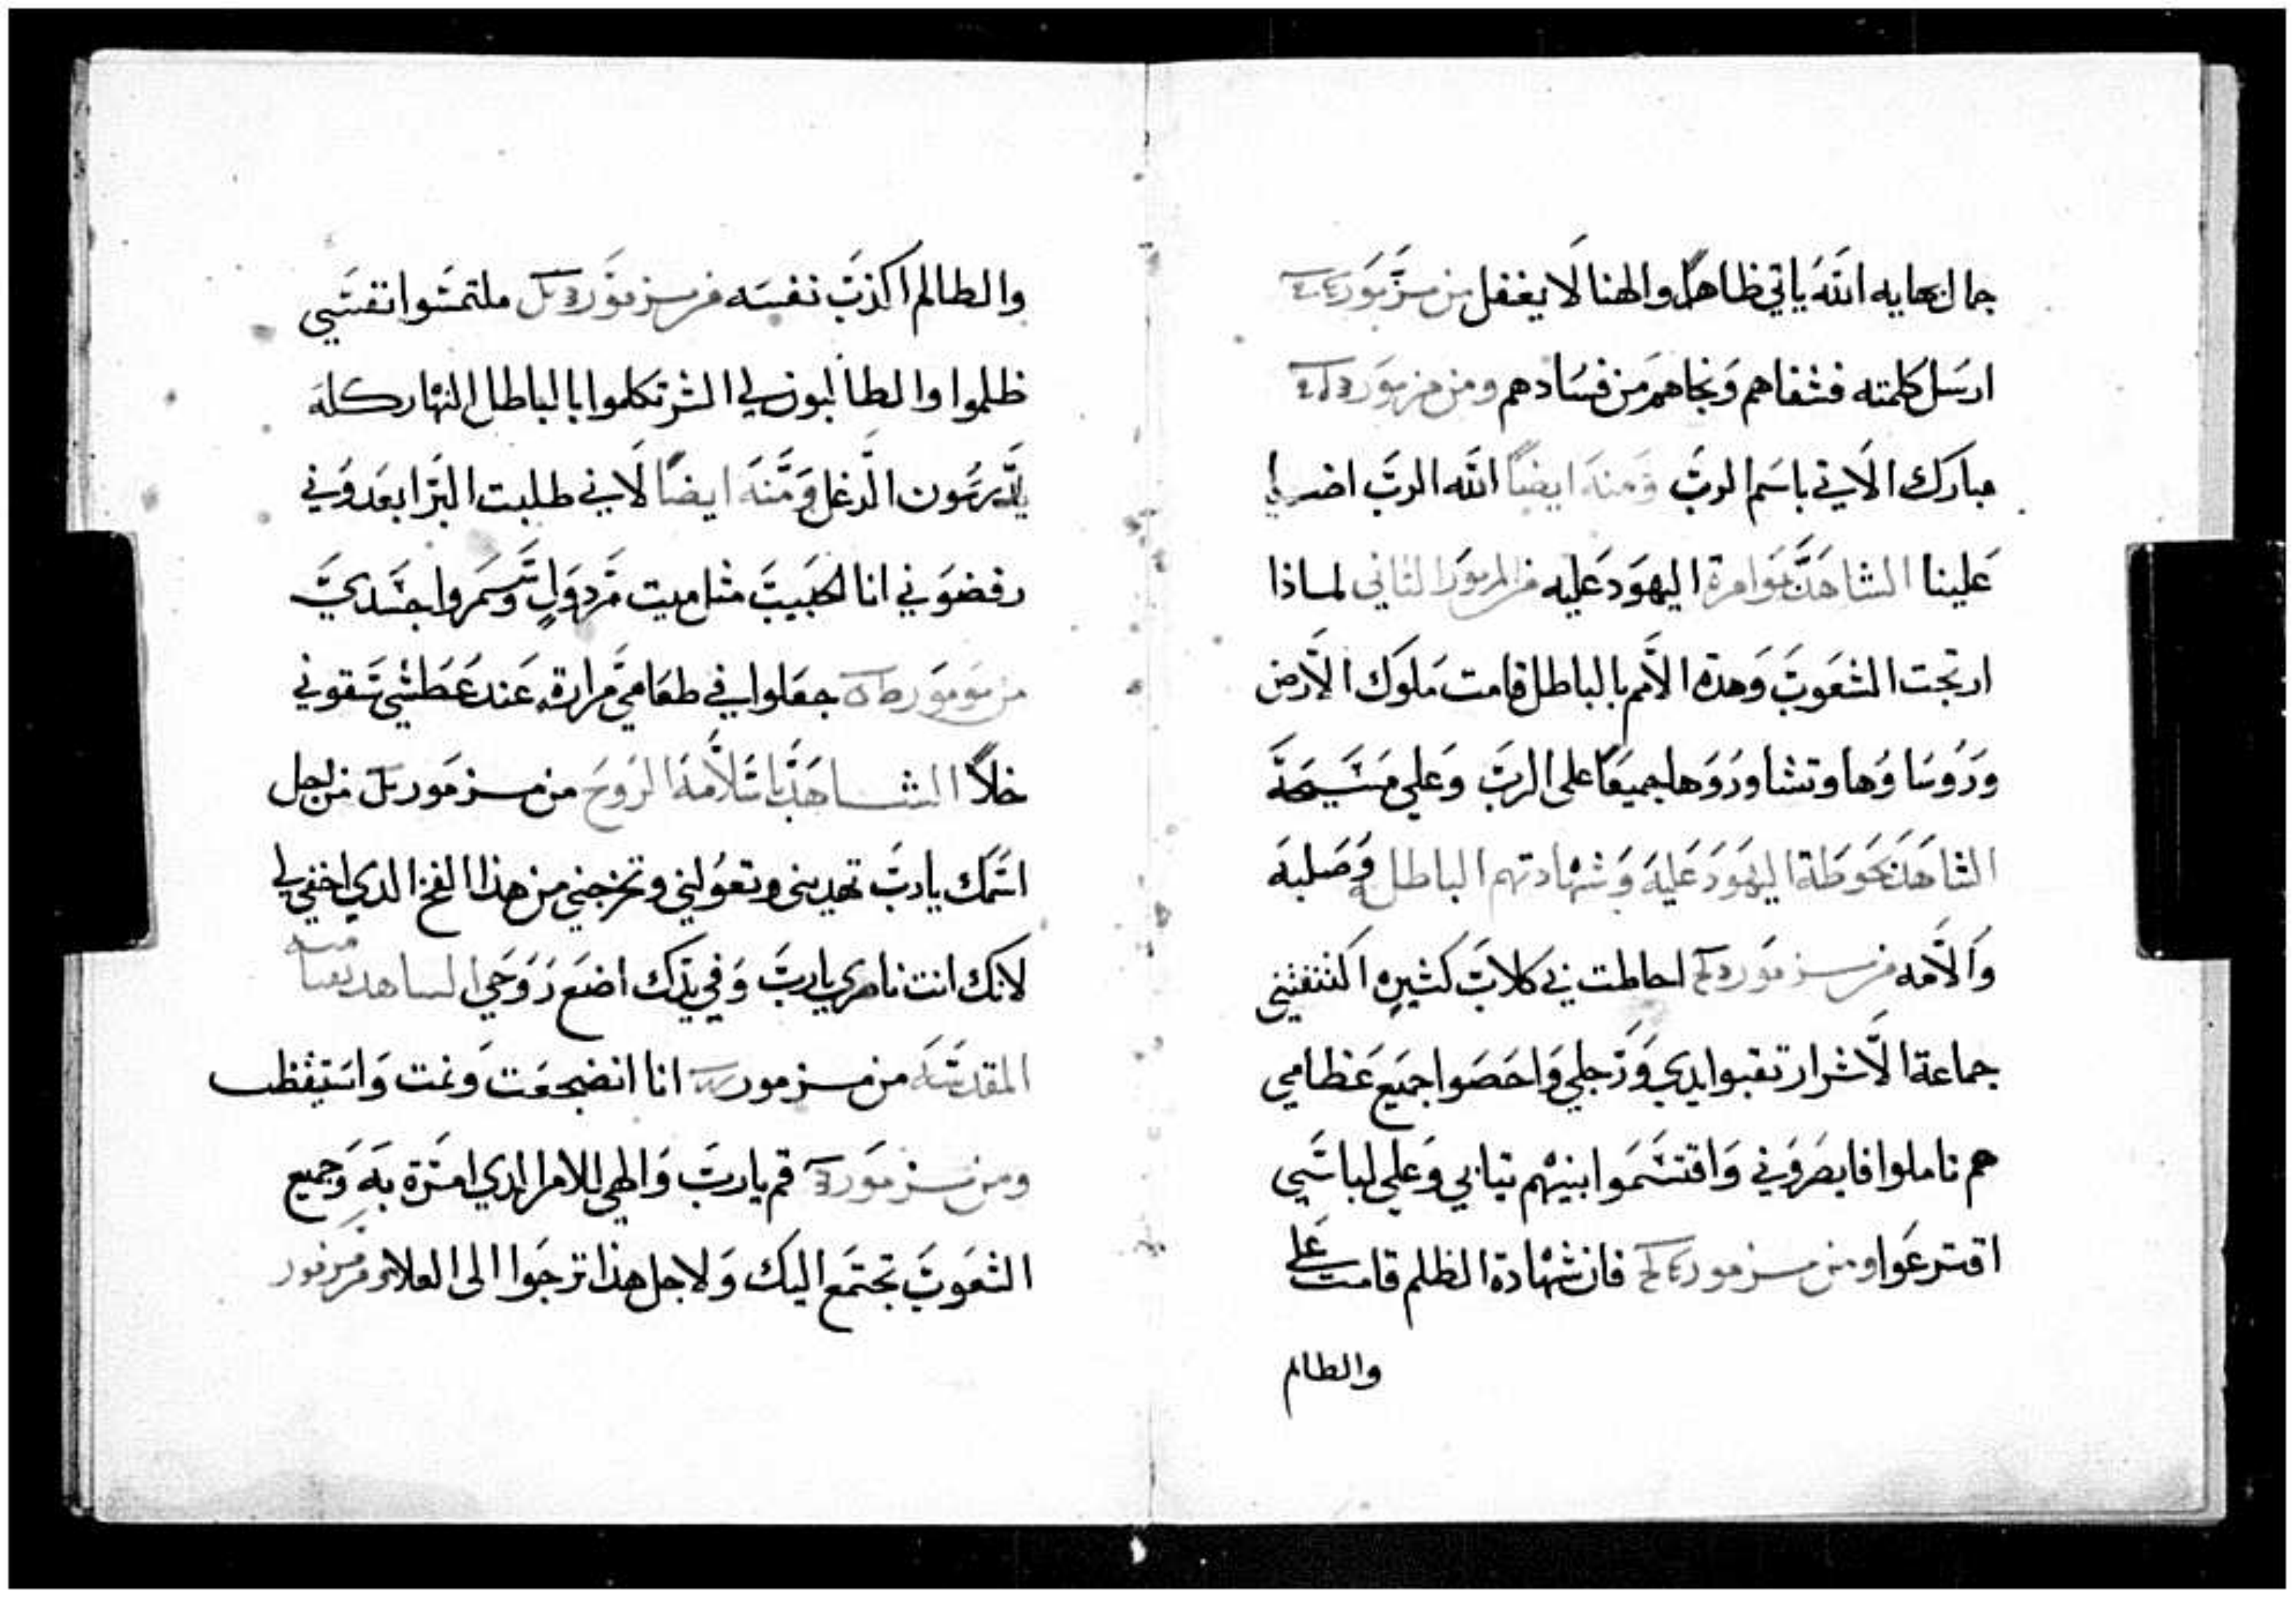 جمال بهايه الله ياتي ظاهرًا والهنا لا يغفل من مزمور
ارسل كلمته فشفاهم ونجاهم من فسادهم ومن مزمور
مبارك الاتي باسم الرب ومنه ايضًا الله الرب اضا
علينا الشاهد بموامرة اليهود عليه من المزمور الثاني لماذا
ارتجت الشعوب وهذه الامم بالباطل قامت ملوك الارض
وروساوها وتشاوروها جميعًا على الرب وعلي مسيحه
الشاهد بحوطة اليهود عليه وشهادتهم الباطل وصلبه
والامه من مزمور احاطت بي كلاب كثيره اكتنفتني
جماعة الاشرار تقبوا يدي ورجلي واحصوا جميع عظامي
هم تاملوا فابصروني واقتسموا بينهم تيابي وعلي لباسي
اقترعوا ومن مزمور فان شهادة الظلم قامت علي
والطالم
والطالم اكذب نفسه من مزمور ملتمسوا نفسي
ظلموا والطالبون لي الشر تكلموا بالباطل النهار كله
يدرسون الدغل ومنه ايضًا لاني طلبت البر ابعدوني
رفضوني انا الحبيب مثل ميت مردول وسمروا جسدي
من مزمور جعلوا في طعامي مرارة عند عطشي سقوني
خلاً الشاهد باسلامه الروح من مزمور من اجل
اسمك يا رب تهديني وتعولني وتخرجني من هذا الفخ الدي اخفي لي
لانك انت ناصري يا رب وفي يدك اضع روحي الساهد بقيامته
المقدسه من مزمور انا انضجعت ونمت واستيقظت
ومن مزمور قم يا رب والهي للامر الدي امرة به وجميع
الشعوب تجتمع اليك ولاجل هذا ترجوا الى العلا ومن مزمور